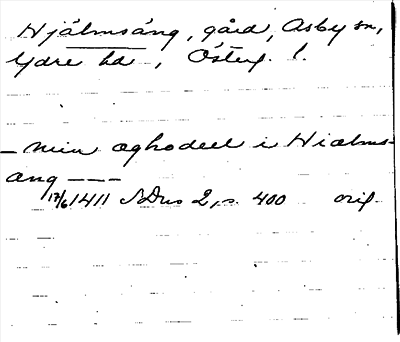 Hjälmsäng, gård, Asby sn,
Ydre hd, Österg. l.
– min aghodeel i Hialms-
ang – – –
17/6 1411 SDns 2, s. 400 orig.